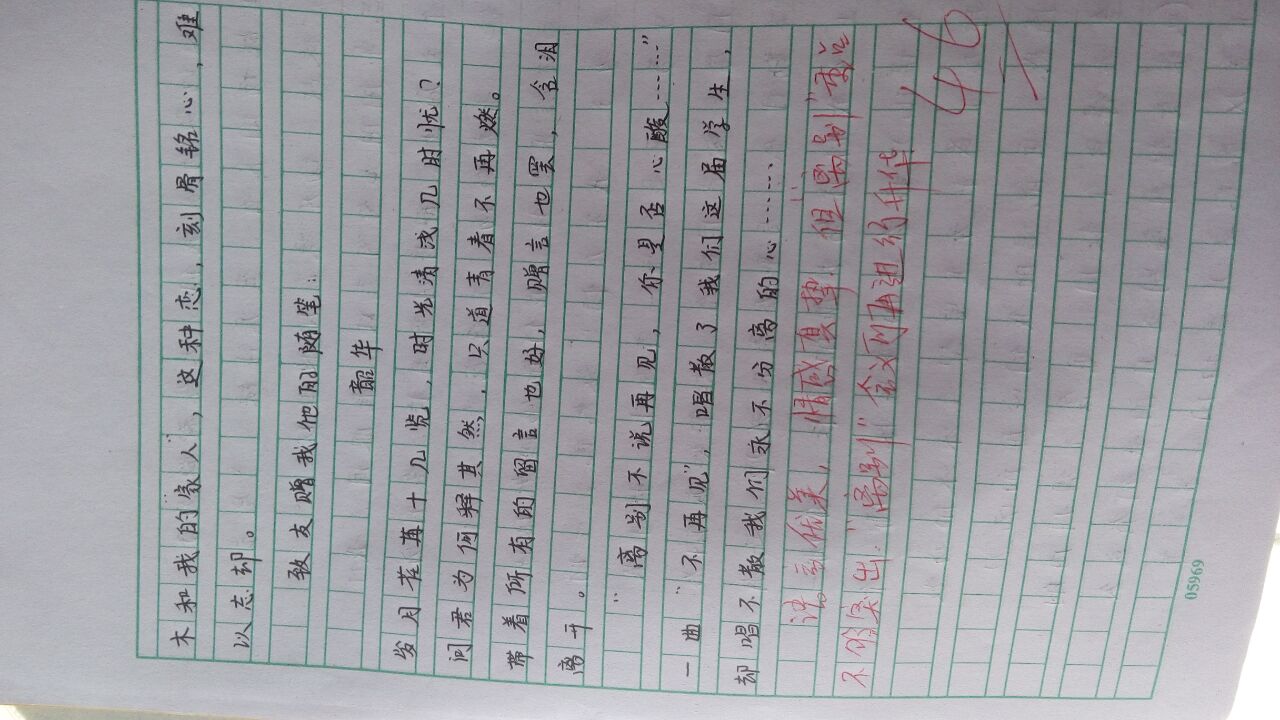 木和我的家人”，这种恋，刻骨铭心，难
以忘却。
致友赠我他的随笔：
韶华
岁月荏苒十几览，时光清浅几时忧？
问君为何释其然，只道青春不再燃。
带着所有的留言也好，赠言也罢，含泪
离开。
“离别不说再见，你是否心酸……”
一曲“不再见”，唱散了我们这届学生，
却唱不散我们永不分离的心……
语言优美，情感真挚．但“离别”
不够突出．“离别”含义可再进行升华
46
05969